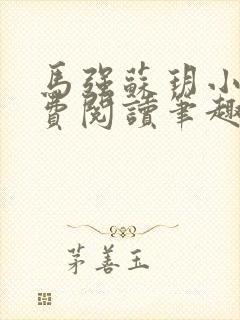 馬強蘇玥小
費閱讀筆趣
茅善玉